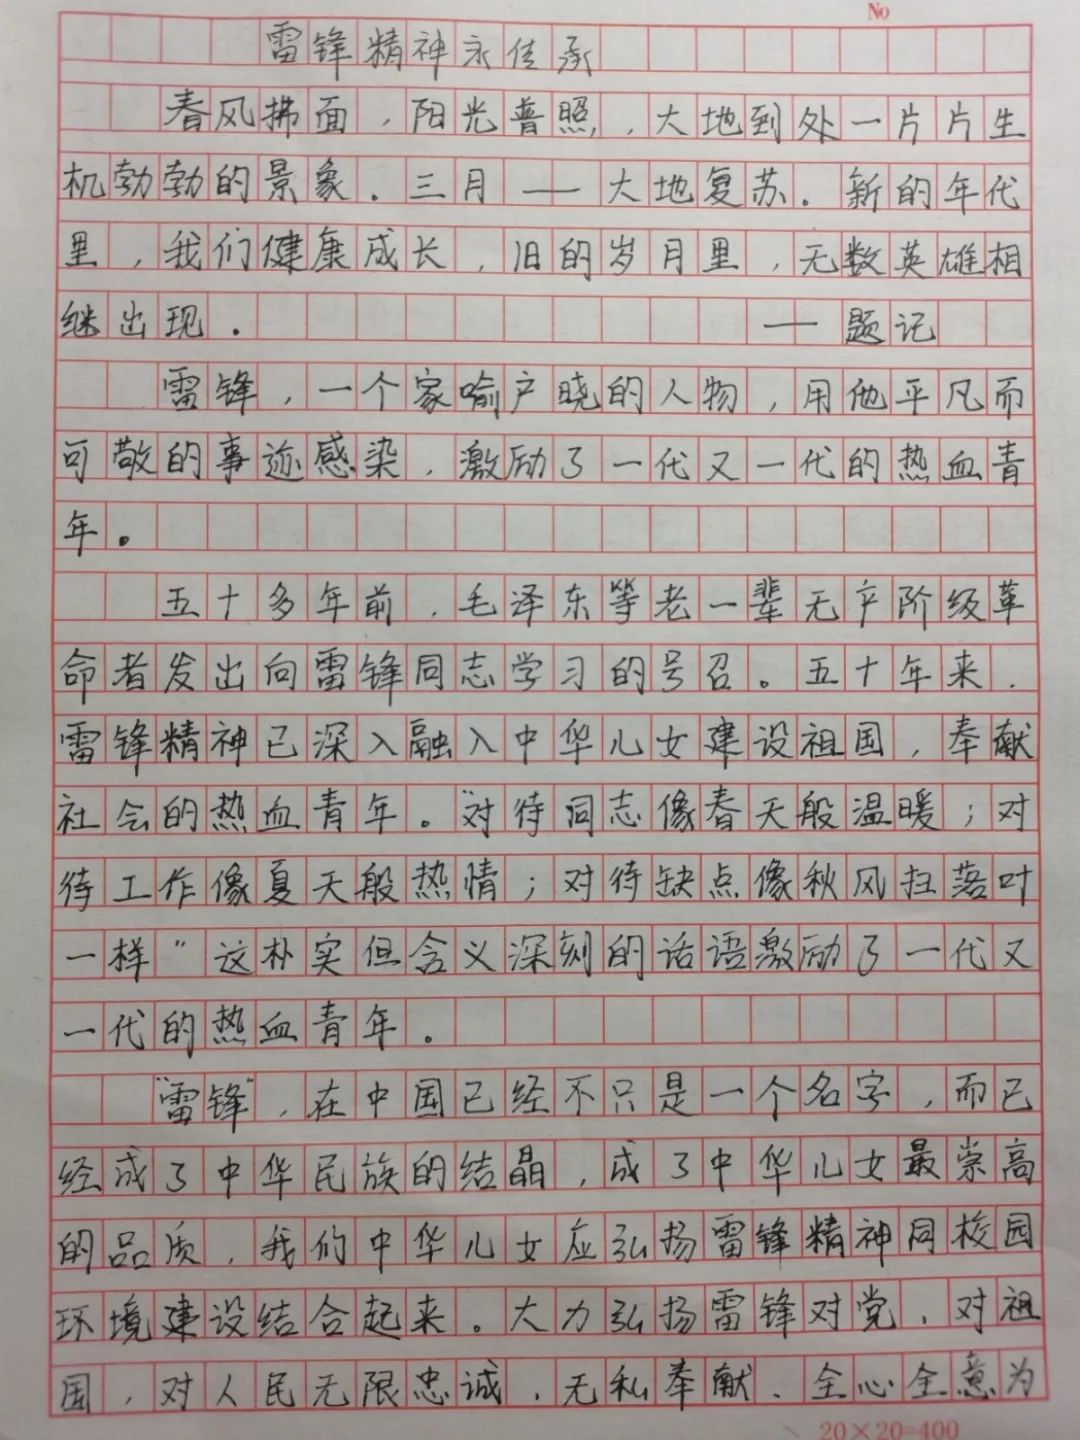 No
雷锋精神永传承
春风拂面，阳光普照，大地到处一片片生
机勃勃的景象．三月——大地复苏．新的年代
里，我们健康成长，旧的岁月里，无数英雄相
继出现．——题记
雷锋，一个家喻户晓的人物，用他平凡而
可敬的事迹感染，激励了一代又一代的热血青
年。
五十多年前，毛泽东等老一辈无产阶级革
命者发出向雷锋同志学习的号召。五十年来．
雷锋精神已深入融入中华儿女建设祖国，奉献
社会的热血青年。“对待同志像春天般温暖；对
待工作像夏天般热情；对待缺点像秋风扫落叶
一样”这朴实但含义深刻的话语激励了一代又
一代的热血青年．
“雷锋”，在中国已经不只是一个名字，而已
经成了中华民族的结晶，成了中华儿女最崇高
的品质，我们中华儿女应弘扬雷锋精神同校园
环境建设结合起来。大力弘扬雷锋对党，对祖
国，对人民无限忠诚，无私奉献、全心全意为
20×20=400